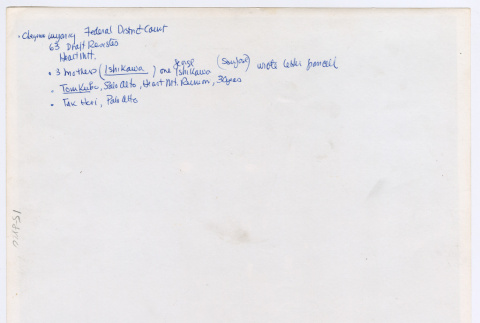 · Cheyenne Wyoming Federal District Court
63 Draft Resisters
Heart Mt.
· 3 mothers (Ishikawa) one Ishikawa (San Jose) wrote letter
· Tom Kubo, Palo Alto, Heart Mt. Reunion, 3 yrs
· Tak Hori, Palo Alto